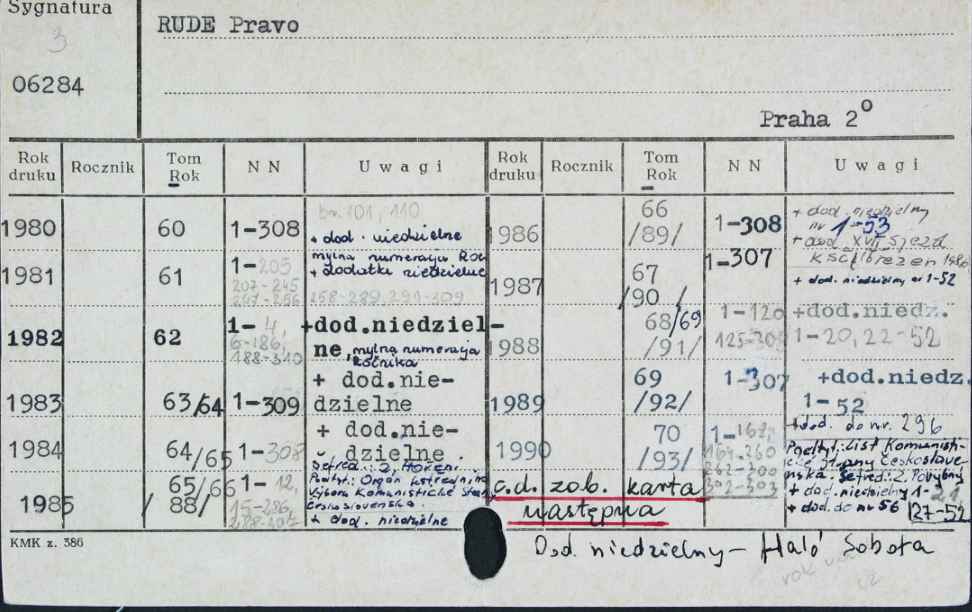 Sygnatura
3
RUDE Pravo
06284
Praha 2°
Rok druku Rocznik Tom Rok N N U w a g i Rok druku Rocznik Tom Rok N N U w a g i
1980 60 1-308 br. 101, 110
+ dod. niedzielne
mylna numeracja
1981 61 1-205
207-245
247-256 258-289, 291-309
+ dodatki niedzielne
1982 62 1-4,
6-186,
188-310
+dod.niedziel-
ne, mylna numeracja
rocznika
1983 63/64 1-309
+ dod.nie-
dzielne
1984 64/65 1-308
+ dod.nie-
dzielne
1985 65/66
/88/
1-12,
15-286,
Šefred.: Z. Hoření.
Podtyt.: Orgán ústředního
Výboru Komunistické
Československa.
+ dod. niedzielne
1986 66
/89/
1-308
+ dod. niedzielny
nr 1-53
+ dod. XVII sjezd
KSČ březen 1986
1987 67
/90 /
1-307
+ dod. niedzielny nr 1-52
1988 68/69
/91/
1-120
125-309
+dod.niedz.
1-20, 22-52
1989 69
/92/
1-307
+dod.niedz.
1-52
+dod. do nr. 296
1990 70
/93/
164-260
262-300
302-303
Podtyt.: List Komunisti-
cké strany Českoslove-
nska. Šefred.: Z.
+ dod. niedzielny 1-21
+ dod. do nr 56 27-52
c.d. zob. karta
następna
KMK z. 386
Dod. niedzielny – Haló Sobota